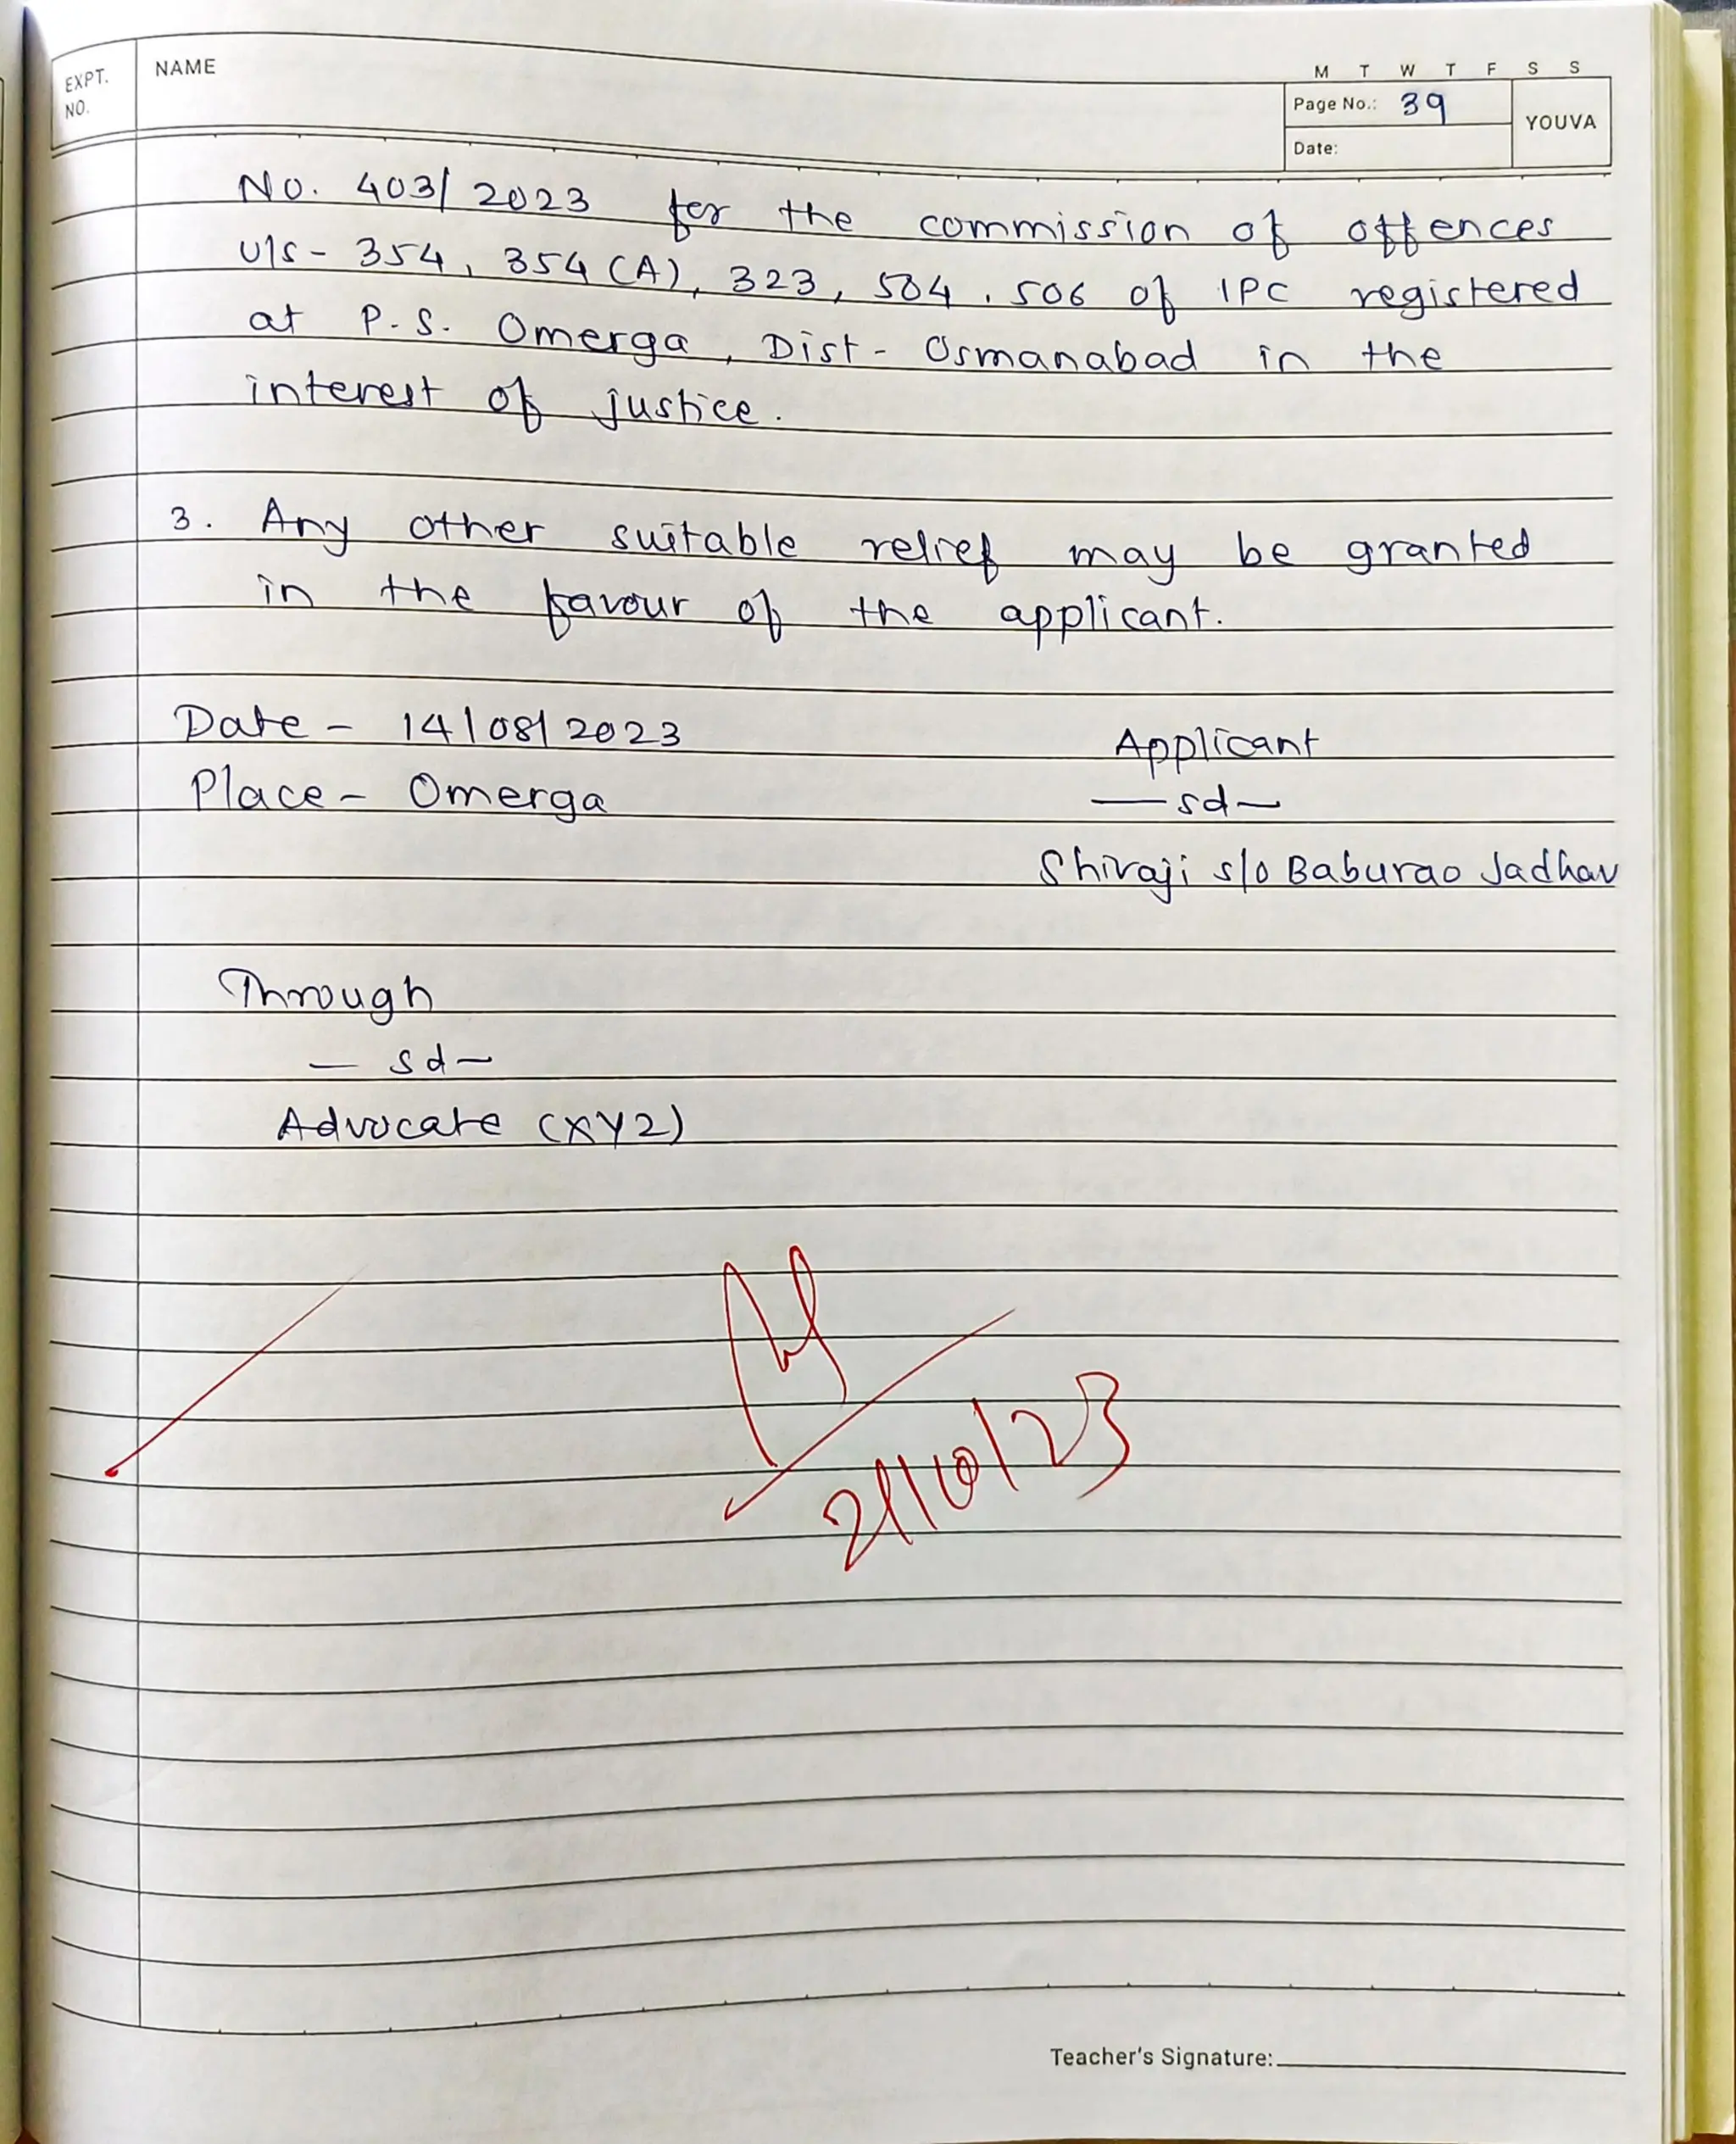 EXPT. NO.
NAME
M T W T F S S
Page No.: 39
YOUVA
Date:
No. 403/2023 for the commission of offences
u/s - 354, 354(A), 323, 504, 506 of IPC registered
at P.S. Omerga, Dist - Osmanabad in the
interest of justice.
3. Any other suitable relief may be granted
in the favour of the applicant.
Date - 14/08/2023
Applicant
Place - Omerga
— sd —
Shivaji s/o Baburao Jadhav
Through
— sd —
Advocate (XYZ)
21/10/23
Teacher's Signature: